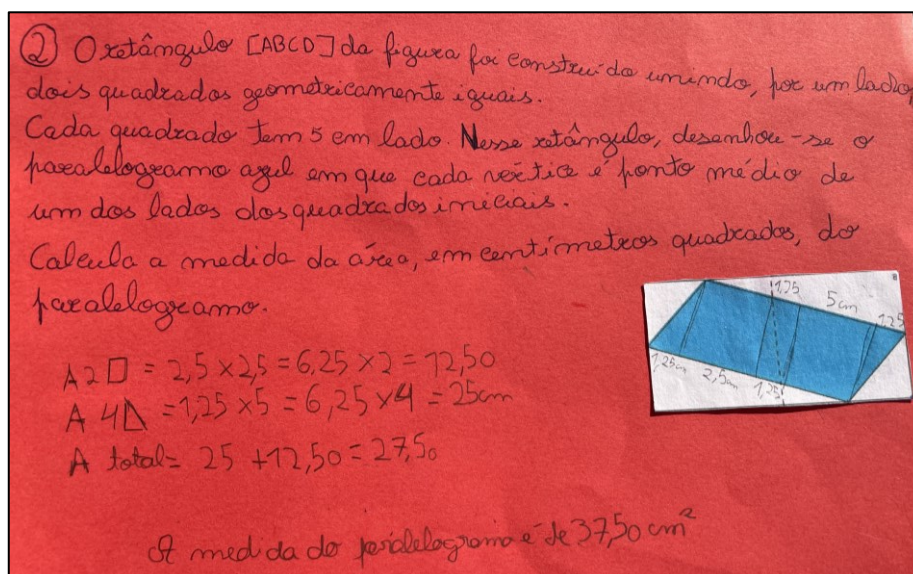 ② O retângulo [ABCD] da figura foi construido unindo, por um lado,
dois quadrados geometricamente iguais.
Cada quadrado tem 5 cm lado. Nesse retângulo, desenhou-se o
paralelogramo azul em que cada vértice é ponto médio de
um dos lados dos quadrados iniciais.
Calcula a medida da área, em centímetros quadrados, do
paralelogramo.
1,25
5cm
1,25
1,25cm
2,5cm
1,25
A 2□ = 2,5 × 2,5 = 6,25 × 2 = 12,50
A 4△ = 1,25 × 5 = 6,25 × 4 = 25cm
A total = 25 + 12,50 = 27,50
A medida do paralelogramo é de 37,50 cm²